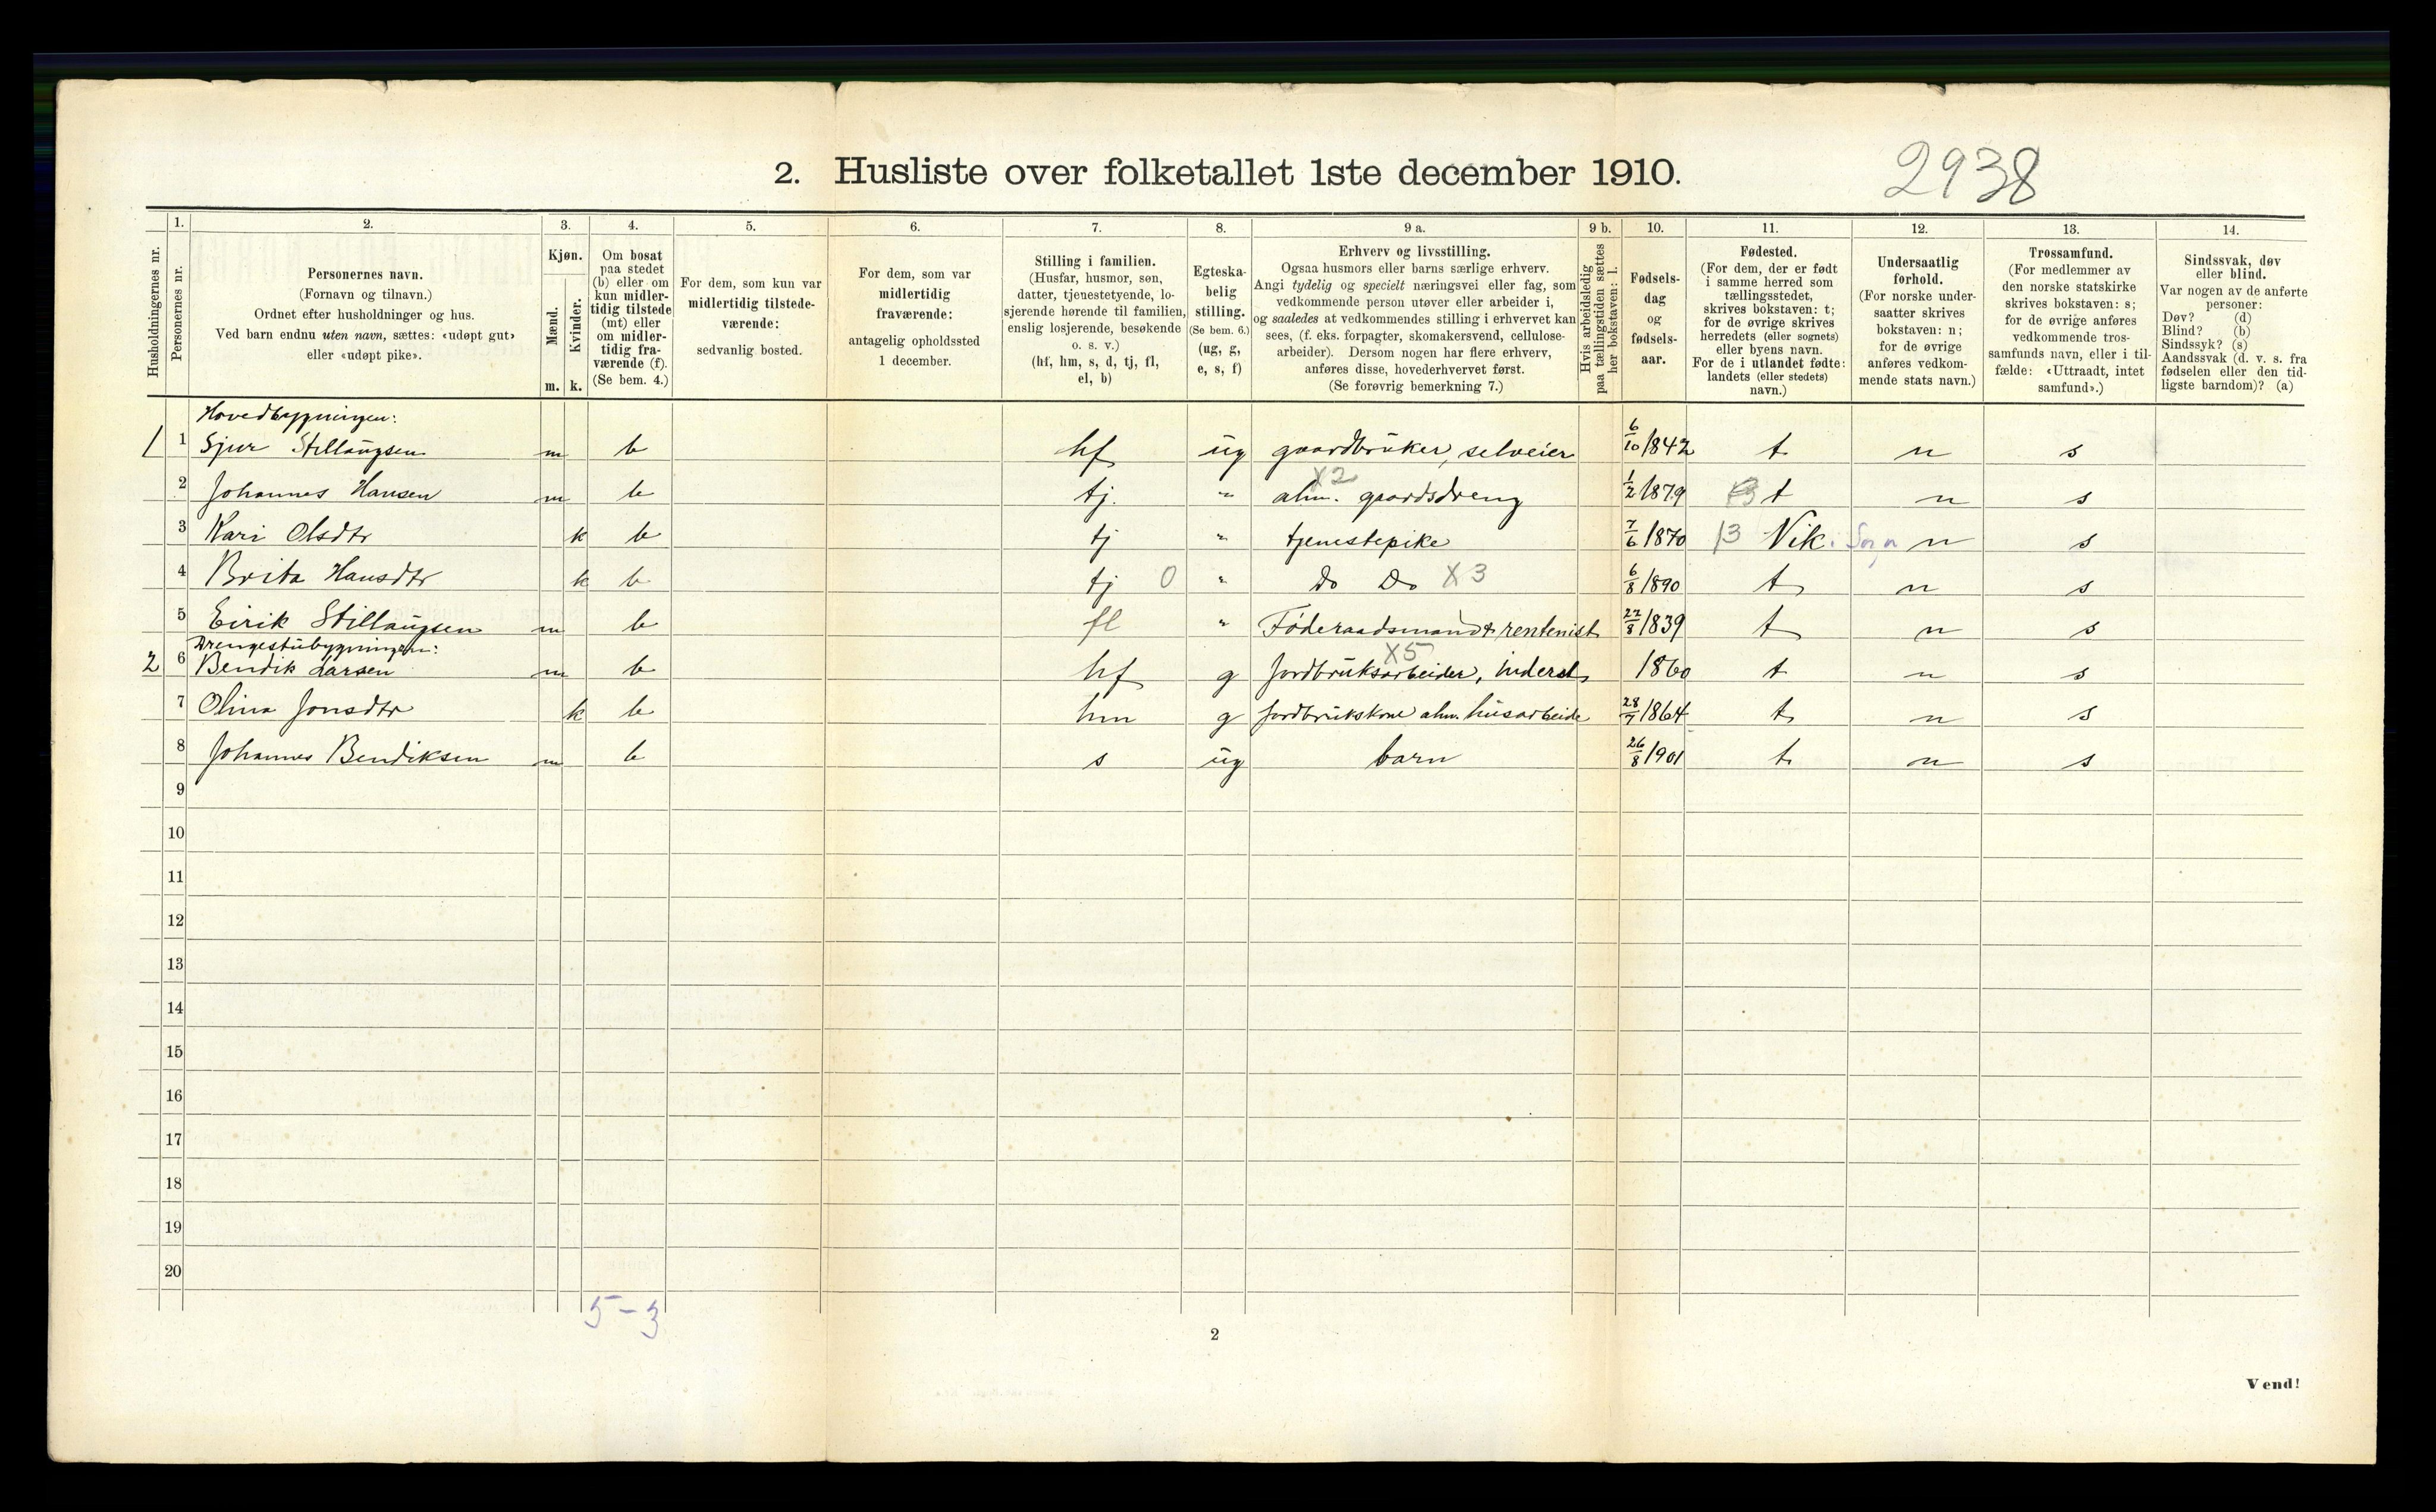 2. Husliste over folketallet 1ste december 1910. 2938
1. 2. 3. 4. 5. 6. 7. 8. 9 a. 9 b. 10. 11. 12. 13. 14.
Husholdningernes nr.
Personernes nr.
Personernes navn.
(Fornavn og tilnavn.)
Ordnet efter husholdninger og hus.
Ved barn endnu uten navn, sættes: «udøpt gut»
eller «udøpt pike».
Kjøn.
Mænd.
Kvinder.
m. k.
Om bosat
paa stedet
(b) eller om
kun midler-
tidig tilstede
(mt) eller
om midler-
tidig fra-
værende (f).
(Se bem. 4.)
For dem, som kun var
midlertidig tilstede-
værende:
sedvanlig bosted.
For dem, som var
midlertidig
fraværende:
antagelig opholdssted
1 december.
Stilling i familien.
(Husfar, husmor, søn,
datter, tjenestetyende, lo-
sjerende hørende til familien,
enslig losjerende, besøkende
o. s. v.)
(hf, hm, s, d, tj, fl,
el, b)
Egteska-
belig
stilling.
(Se bem. 6.)
(ug, g,
e, s, f)
Erhverv og livsstilling.
Ogsaa husmors eller barns særlige erhverv.
Angi tydelig og specielt næringsvei eller fag, som
vedkommende person utøver eller arbeider i,
og saaledes at vedkommendes stilling i erhvervet kan
sees, (f. eks. forpagter, skomakersvend, cellulose-
arbeider). Dersom nogen har flere erhverv,
anføres disse, hovederhvervet først.
(Se forøvrig bemerkning 7.)
Hvis arbeidsledig
paa tællingstiden sættes
her bokstaven: l.
Fødsels-
dag
og
fødsels-
aar.
Fødested.
(For dem, der er født
i samme herred som
tællingsstedet,
skrives bokstaven: t;
for de øvrige skrives
herredets (eller sognets)
eller byens navn.
For de i utlandet fødte:
landets (eller stedets)
navn.)
Undersaatlig
forhold.
(For norske under-
saatter skrives
bokstaven: n;
for de øvrige
anføres vedkom-
mende stats navn.)
Trossamfund.
(For medlemmer av
den norske statskirke
skrives bokstaven: s;
for de øvrige anføres
vedkommende tros-
samfunds navn, eller i til-
fælde: «Uttraadt, intet
samfund».)
Sindssvak, døv
eller blind.
Var nogen av de anførte
personer:
Døv? (d)
Blind? (b)
Sindssyk? (s)
Aandssvak (d. v. s. fra
fødselen eller den tid-
ligste barndom)? (a)
Hovedbygningen:
1 1 Sjur Stillaugsen m b hf ug gaardbruker, selveier 6/10 1842 t n s
X2
2 Johannes Hansen m b tj. " alm. gaardsdreng 1/2 1879 t n s
3 Kari Olsdtr k b tj " tjenestepike 7/6 1870 13 Vik i Sogn n s
4 Brita Hansdtr k b tj 0 " Do Do X3 6/8 1890 t n s
5 Eirik Stillaugsen m b fl " Føderaadsmand & rentenist 27/8 1839 t n s
Drengestubygningen: X5
2 6 Bendik Larsen m b hf g Jordbruksarbeider, inderst 1860 t n s
7 Olina Jonsdtr k b hm g Jordbrukskone alm. husarbeide 28/7 1864 t n s
8 Johannes Bendiksen m b s ug barn 26/8 1901 t n s
9
10
11
12
13
14
15
16
17
18
19
20
5-3
2
Vend!